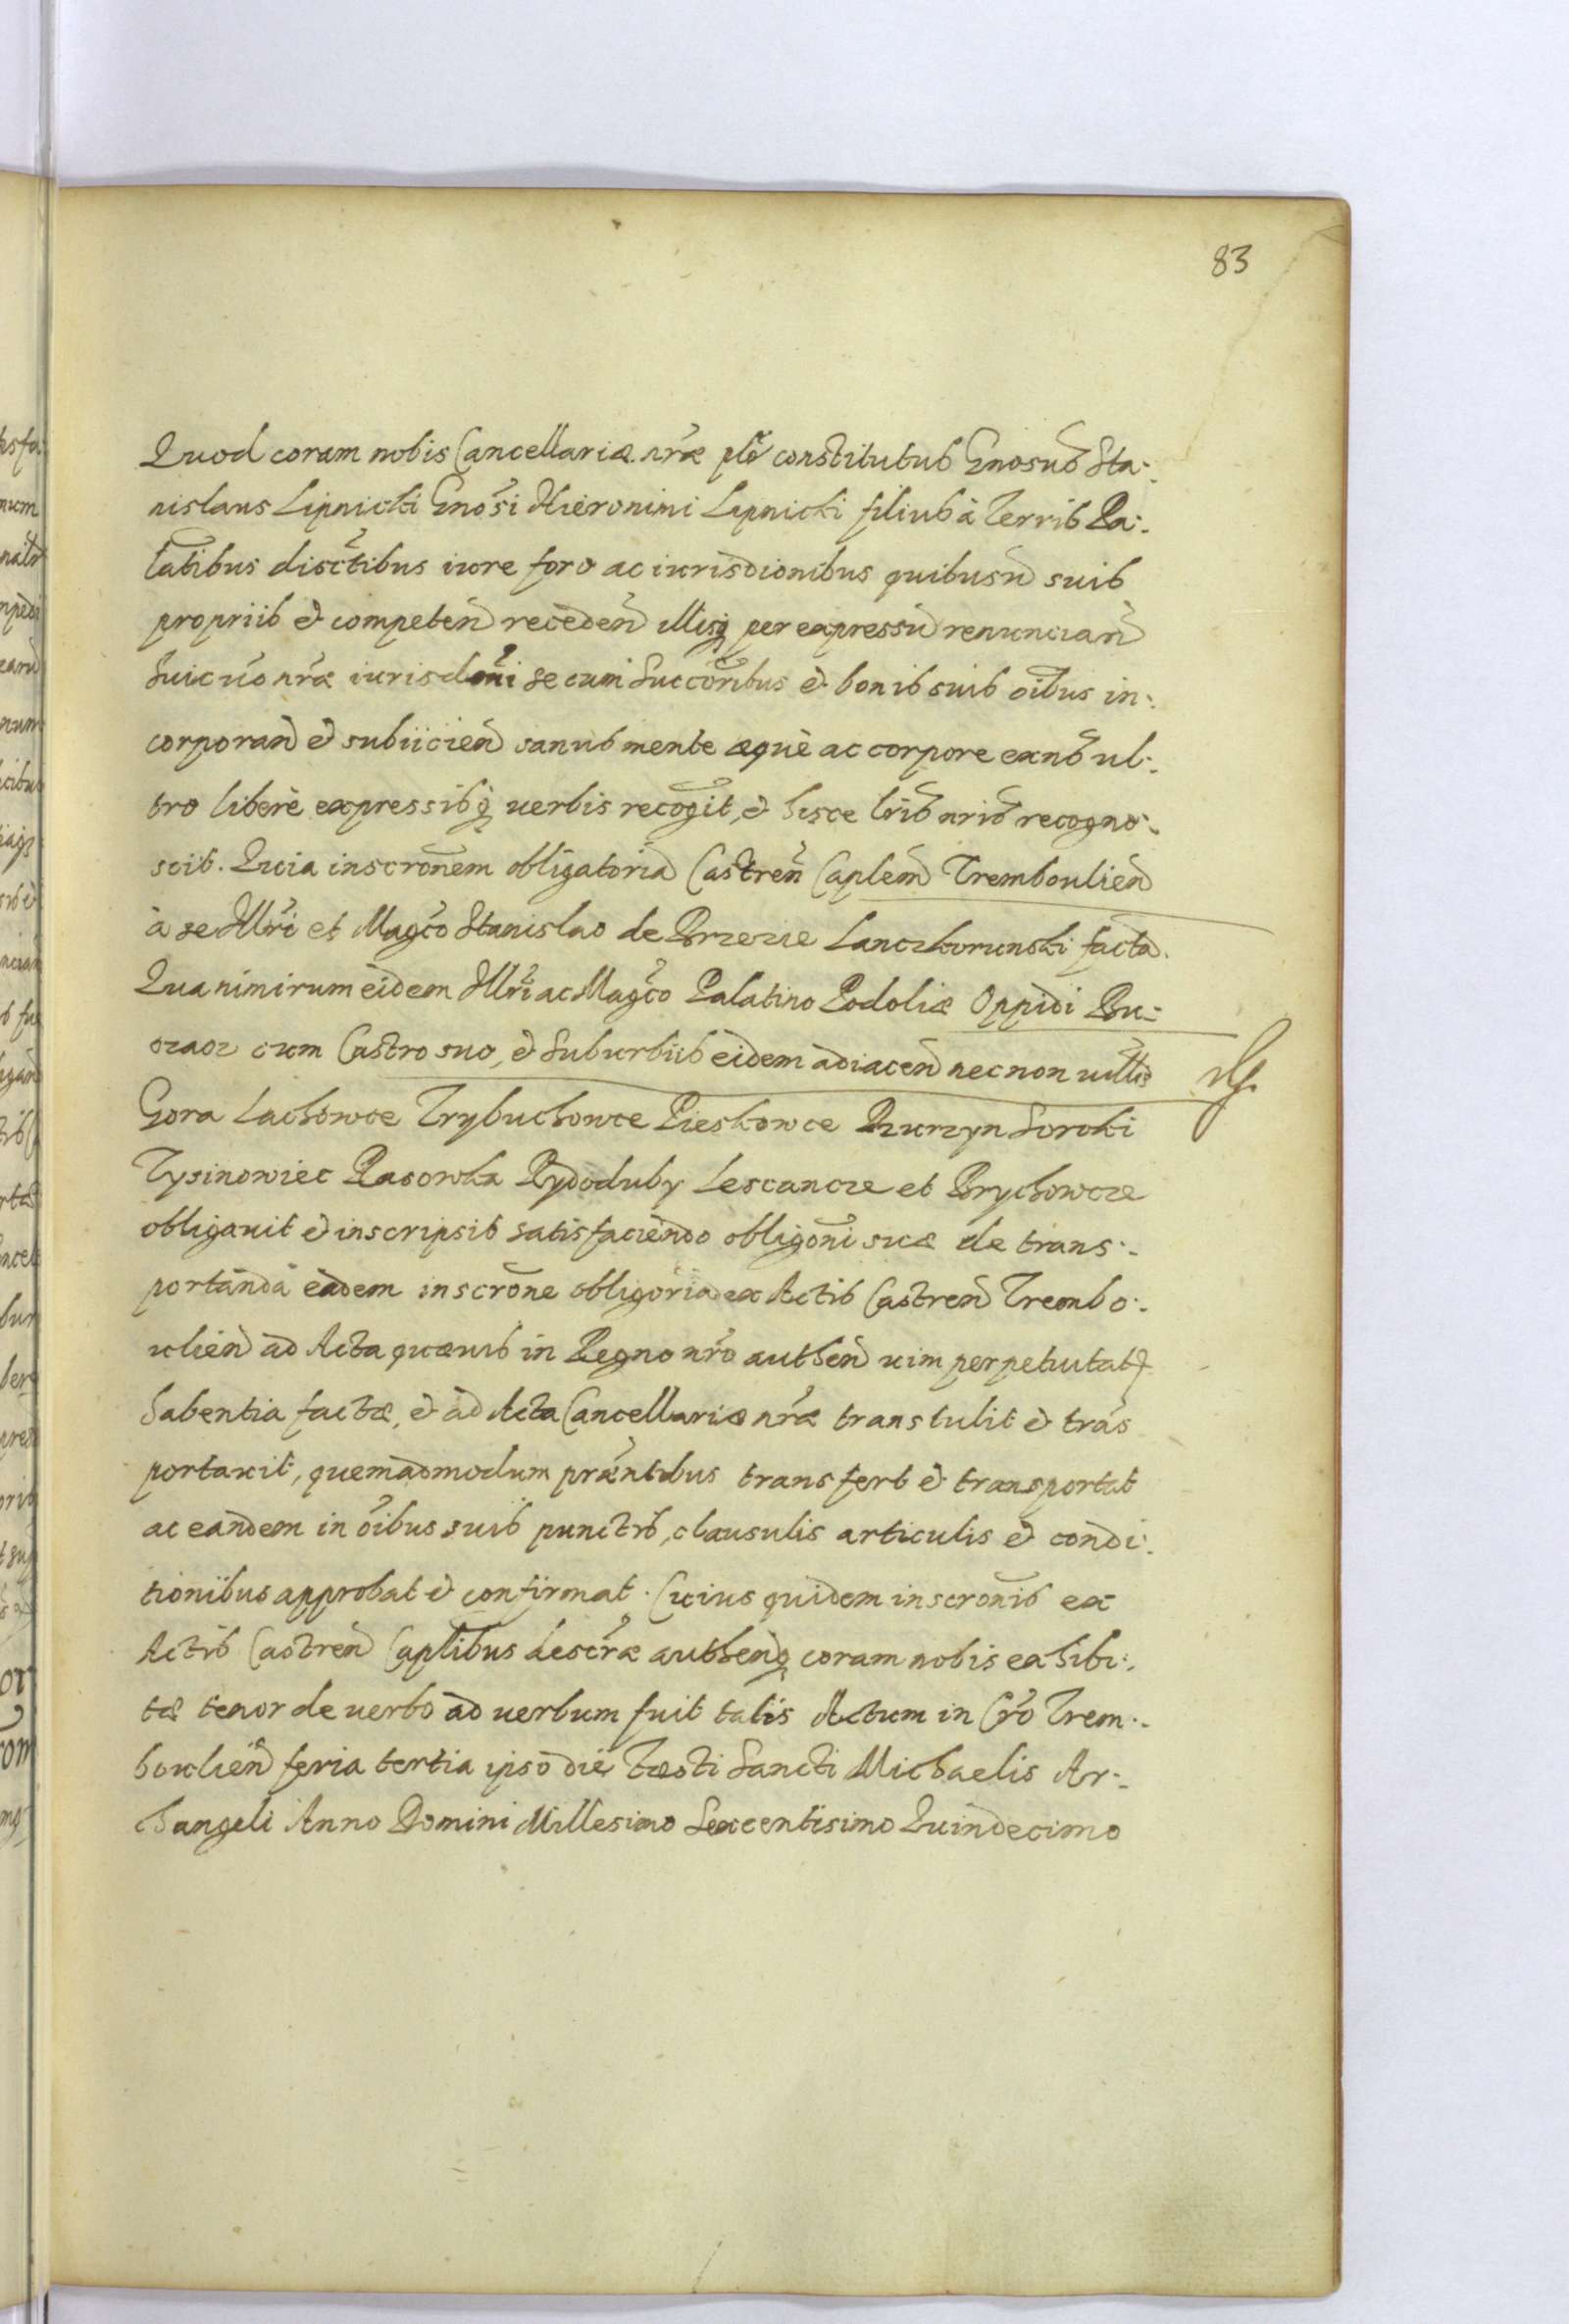 83
Quod coram nobis Cancellariæ nr̃æ plr̃ constitutus Gnosus Sta-
nislaus Lipnicki Gnosi Hieronimi Lipnicki filius à Terris Pa-
latibus disctibus iure foro ac iurisdionibus quibusũ suis
propriis et competeñ recedeñ illisq̃ per expressũ renunciañ
huicuo nr̃æ iurisdoni se cum Succoribus et bonis suis oibus in-
corporañ et subiicieñ sanus mente æquè ac corpore exñs ul-
tro liberè expressisq̃ uerbis recogit, et hisce lris nris recogno-
scit. Quia inscronem obligatoriã Castreñ Capleñ Trembouлieñ
à se Illri et Magco Stanislao de Brzezie Lanczkorunski factã.
Qua nimirum eidem Illri ac Magco Palatino Podoliæ Oppidi Bu-
czacz cum Castro suo, et Suburbiis eidem adiaceñ necnon uillis
Gora Lachowce Trybuchowce Pieskowce Rzurzyn Soroki
Tysinowiec Rasowka Rydoduby Lescancze et Brychowcze
obligauit et inscripsit satisfaciendo obligoni suæ de trans-
portanda eadem inscrone obligoria ex Actis Castreñ Trembo-
ulieñ ad Acta quæuis in Regno nro autheñ uim perpetuitatis
habentia factæ, et ad Acta Cancellariæ nræ transtulit et trãs
portauit, quemadmodum præntibus transfert et transportat
ac eandem in oibus suis punctis, clausulis articulis et condi-
tionibus approbat et confirmat. Cuius quidem inscronis ex
Actis Castreñ Caplibus descræ autheñq̃ coram nobis exhibi-
tæ tenor de uerbo ad uerbum fuit talis Actum in Cro Trem-
boulieñ feria tertia ipso die Festi Sancti Michaelis Ar-
changeli Anno Domini Millesimo Sexcentisimo Quindecimo